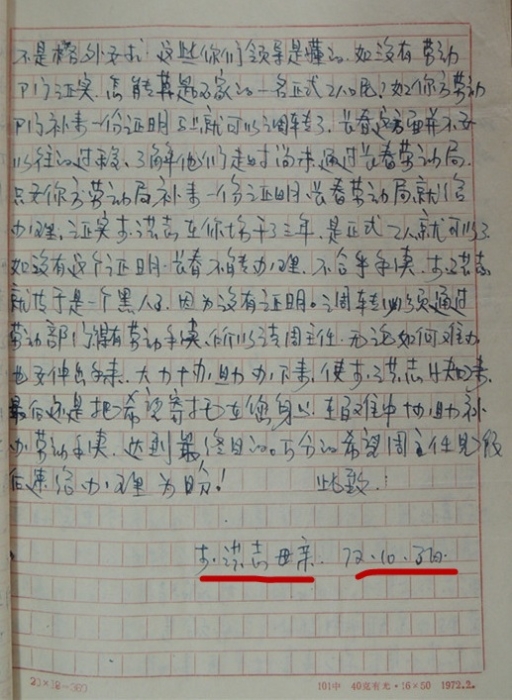 不是格外要求，这些你们领导是懂的。如没有劳动
部门证实，怎能算是国家的一名正式工人呢？如你方劳动
部门补来一份证明，马上就可以调转了，长春这方面并不要
以往的过程，了解他们走时尚未通过长春劳动局，
只要你方劳动局补来一份证明，长春劳动局就给
办理，证实李洪志在你场干了三年，是正式工人就可以了
如没有这个证明，长春不能办理，不合乎手续，李洪志
就该于是一个黑人了，因为没有证明。调转必须通过
劳动部门得有劳动手续，所以请周主任，无论如何难办
也要伸出手来，大力协助办下来，使李洪志早日回来，
最后还是把希望寄托在您身上，在百难中协助补
办劳动手续，达到最终目的。万分的希望周主任见信
后速给办理为盼！ 此致！
李洪志母亲 72.10.3日.
20×18=360 101中 40克有光·16×50 1972.2.